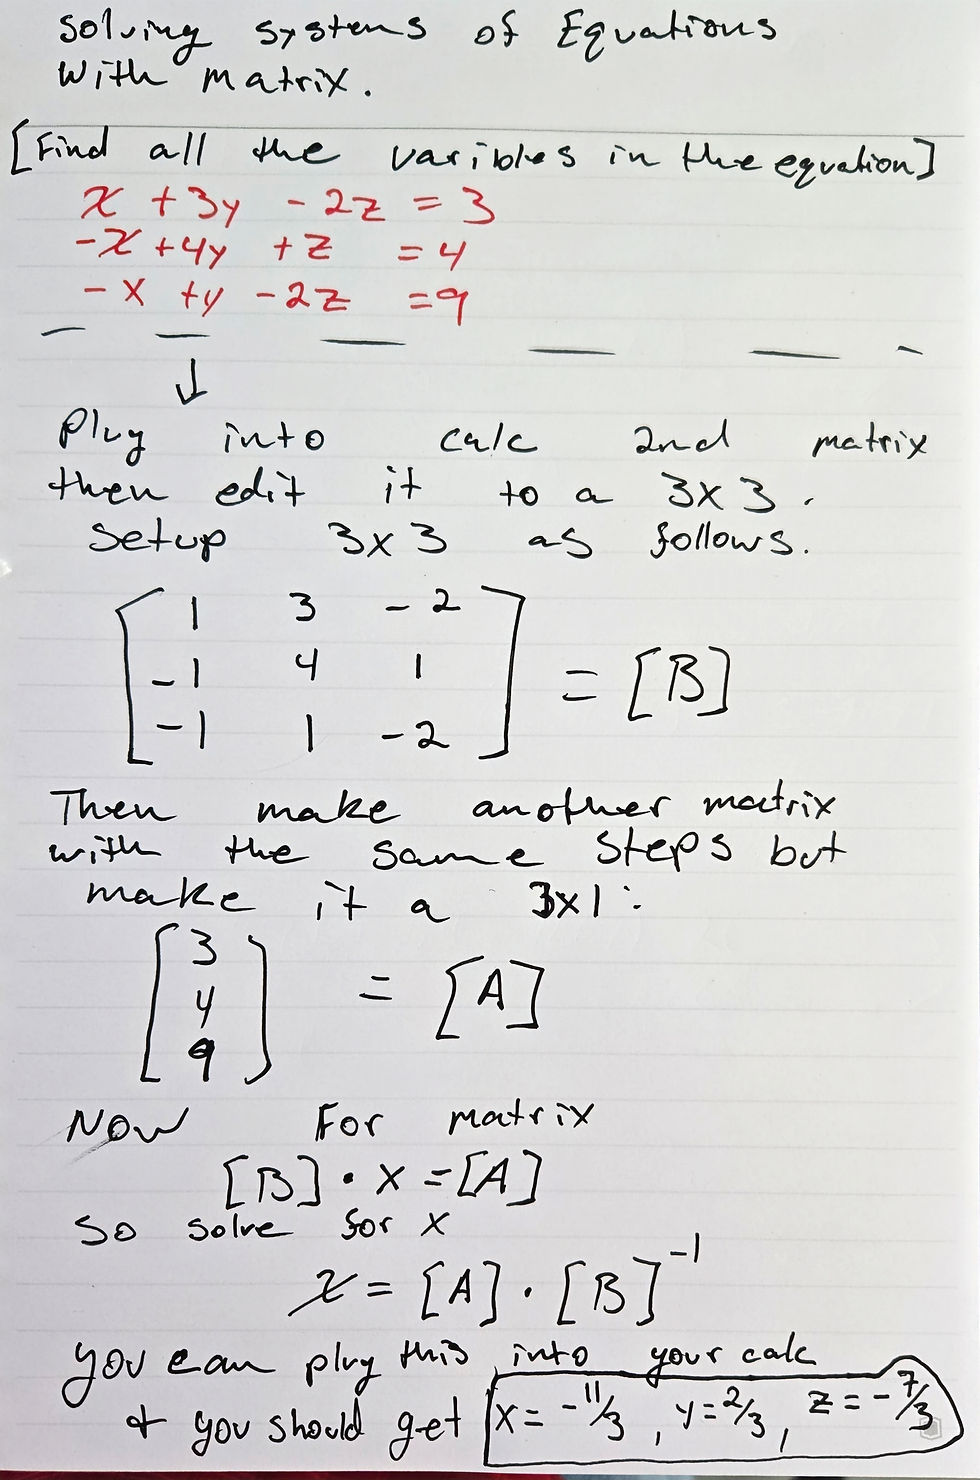 Solving systems of Equations
With matrix.
[Find all the varibles in the equation]
x + 3y - 2z = 3
-x + 4y + z = 4
-x + y - 2z = 9
↓
Plug into calc 2nd matrix
then edit it to a 3x3.
Setup 3x3 as follows.
1 3 -2
-1 4 1 = [B]
-1 1 -2
Then make another matrix
with the same steps but
make it a 3x1:
3
4 = [A]
9
Now For matrix
[B] · x = [A]
So solve for x
x = [A] · [B]^-1
you can plug this into your calc
+ you should get x = -11/3, y = 2/3, z = -7/3